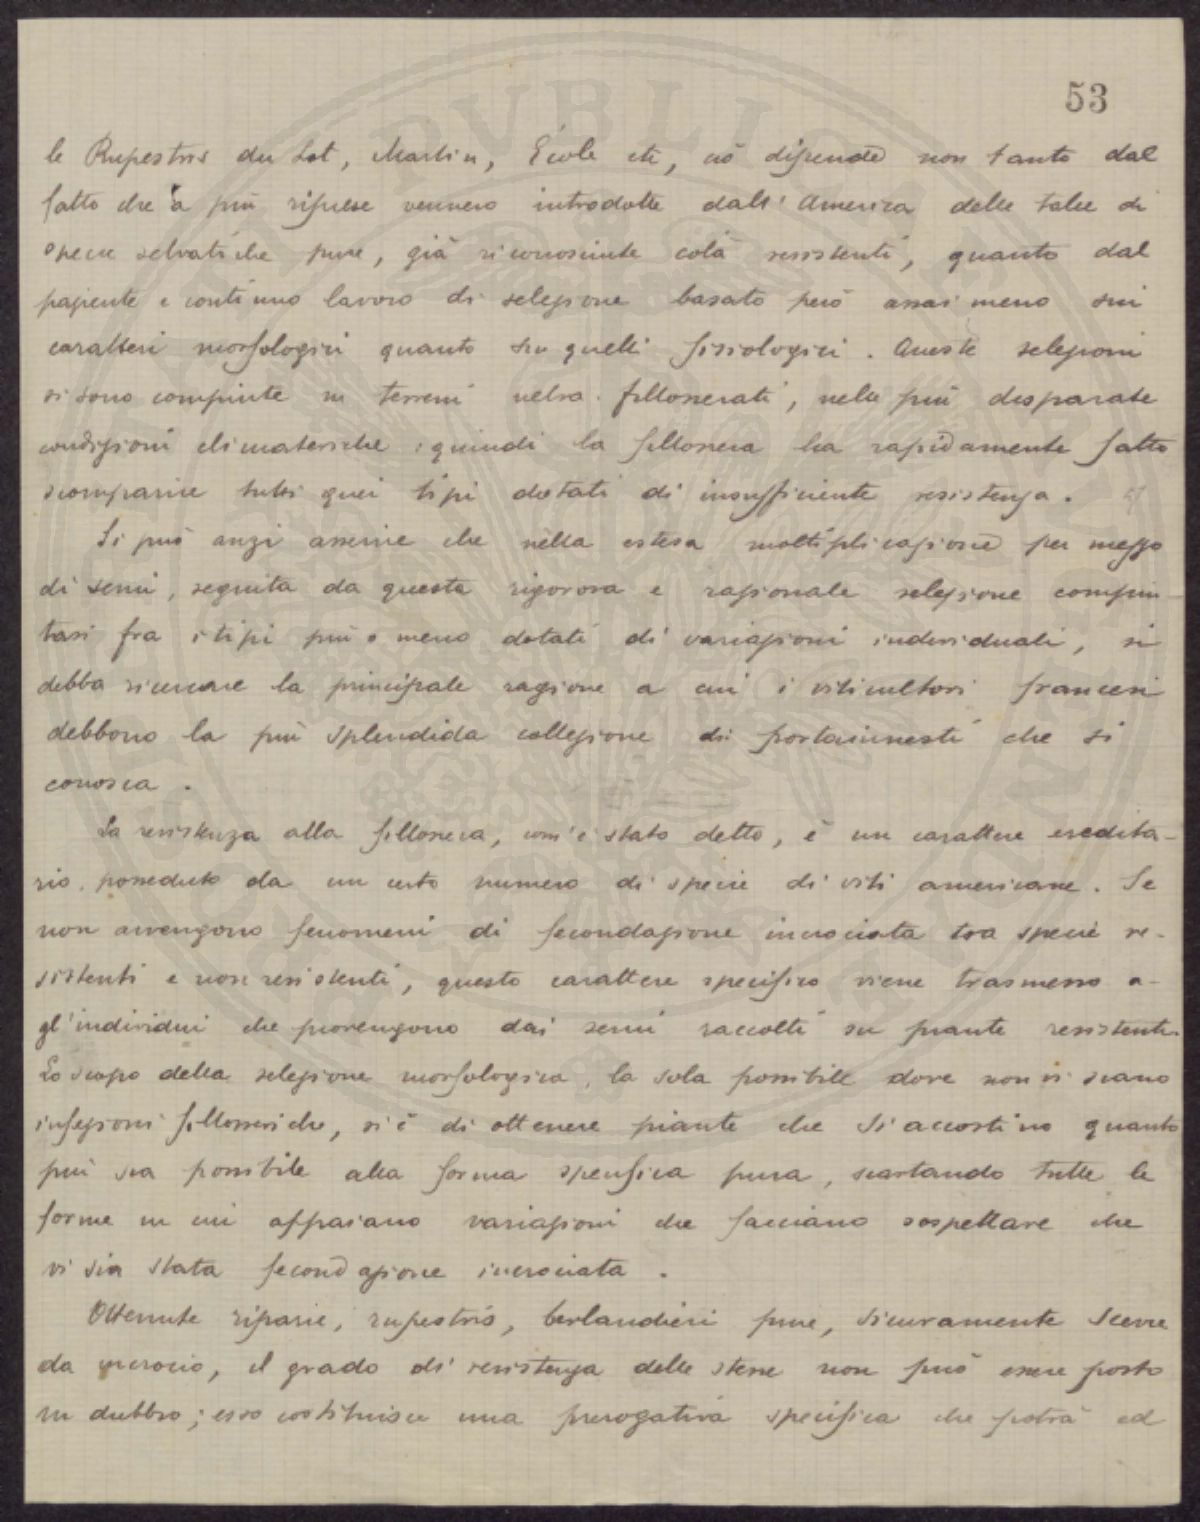 53
le Rupestris du Lot, Martin, École etc, ciò dipende non tanto dal
fatto che a più riprese vennero introdotte dall'America delle talee di
specie selvatiche pure, già riconosciute colà resistenti, quanto dal
paziente e continuo lavoro di selezione basato però assai meno sui
caratteri morfologici quanto su quelli fisiologici. Queste selezioni
si sono compiute in terreni ultra fillosserati, nelle più disparate
condizioni climateriche: quindi la fillossera ha rapidamente fatto
scomparire tutti quei tipi dotati di insufficiente resistenza.
Si può anzi asserire che nella estesa moltiplicazione per mezzo
di semi, seguita da questa rigorosa e razionale selezione compiu-
tasi fra i tipi più o meno dotati di variazioni individuali, si
debba ricercare la principale ragione a cui i viticultori francesi
debbono la più splendida collezione di portainnesti che si
conosca.
La resistenza alla fillossera, com'è stato detto, è un carattere eredita-
rio posseduto da un certo numero di specie di viti americane. Se
non avvengono fenomeni di fecondazione incrociata tra specie re-
sistenti e non resistenti, questo carattere specifico viene trasmesso a-
gl'individui che provengono dai semi raccolti su piante resistenti.
Lo scopo della selezione morfologica, la sola possibile dove non vi siano
infezioni fillosseriche, si è di ottenere piante che si accostino quanto
più sia possibile alla forma specifica pura, scartando tutte le
forme in cui appaiano variazioni che facciano sospettare che
vi sia stata fecondazione incrociata.
Ottenute riparie, rupestris, berlandieri pure, sicuramente scevre
da incrocio, il grado di resistenza delle stesse non può essere posto
in dubbio; esso costituisce una prerogativa specifica che potrà ed